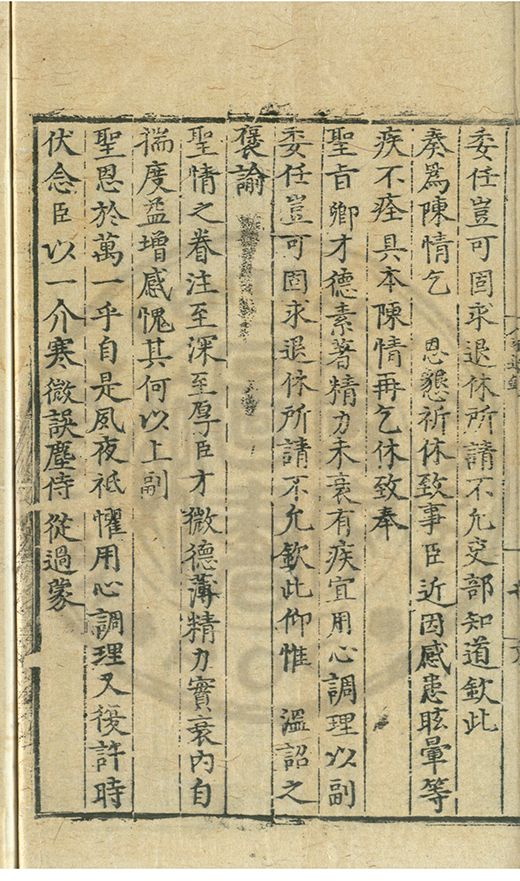 委任豈可固求退休所請不允吏部知道欽此
奏爲陳情乞　恩懇祈休致事臣近因感患眩暈等
疾不痊具本陳情再乞休致奉
聖旨卿才德素著精力未衰有疾宜用心調理以副
委任豈可固求退休所請不允欽此仰惟　溫詔之
褒諭
聖情之眷注至深至厚臣才微德薄精力實衰內自
揣度益增感愧其何以上副
聖恩於萬一乎自是夙夜祗懼用心調理又復許時
伏念臣以一介寒微誤塵侍從過蒙